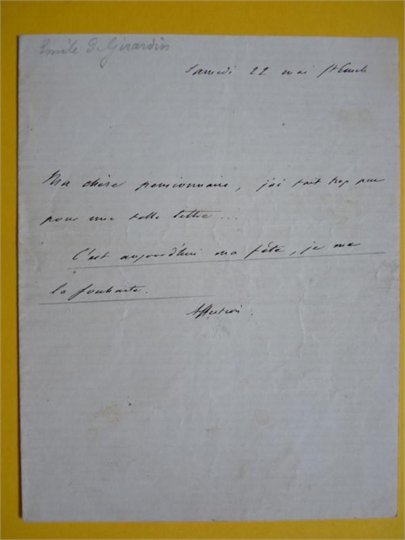 Emile D. Girardin
Samedi 22 mai St Emile
Ma chère pensionnaire, j'ai tout trop
pour une telle lettre...
C'est aujourd'hui ma fête, je me
la souhaite.